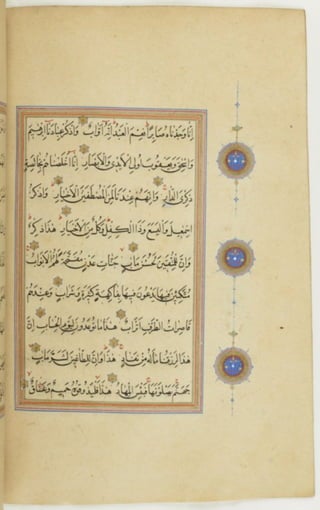 إِنَّا وَجَدْنَاهُ صَابِرًا نِعْمَ الْعَبْدُ إِنَّهُ أَوَّابٌ وَاذْكُرْ عِبَادَنَا إِبْرٰهِيمَ
وَإِسْحٰقَ وَيَعْقُوبَ أُولِي الْأَيْدِي وَالْأَبْصَارِ إِنَّا أَخْلَصْنَاهُمْ بِخَالِصَةٍ
ذِكْرَى الدَّارِ وَإِنَّهُمْ عِنْدَنَا لَمِنَ الْمُصْطَفَيْنَ الْأَخْيَارِ وَاذْكُرْ
إِسْمٰعِيلَ وَالْيَسَعَ وَذَا الْكِفْلِ وَكُلٌّ مِنَ الْأَخْيَارِ هٰذَا ذِكْرٌ
وَإِنَّ لِلْمُتَّقِينَ لَحُسْنَ مَآبٍ جَنَّاتِ عَدْنٍ مُفَتَّحَةً لَهُمُ الْأَبْوَابُ
مُتَّكِئِينَ فِيهَا يَدْعُونَ فِيهَا بِفَاكِهَةٍ كَثِيرَةٍ وَشَرَابٍ وَعِنْدَهُمْ
قَاصِرَاتُ الطَّرْفِ أَتْرَابٌ هٰذَا مَا تُوعَدُونَ لِيَوْمِ الْحِسَابِ إِنَّ
هٰذَا لَرِزْقُنَا مَا لَهُ مِنْ نَفَادٍ هٰذَا وَإِنَّ لِلطَّاغِينَ لَشَرَّ مَآبٍ
جَهَنَّمَ يَصْلَوْنَهَا فَبِئْسَ الْمِهَادُ هٰذَا فَلْيَذُوقُوهُ حَمِيمٌ وَغَسَّاقٌ